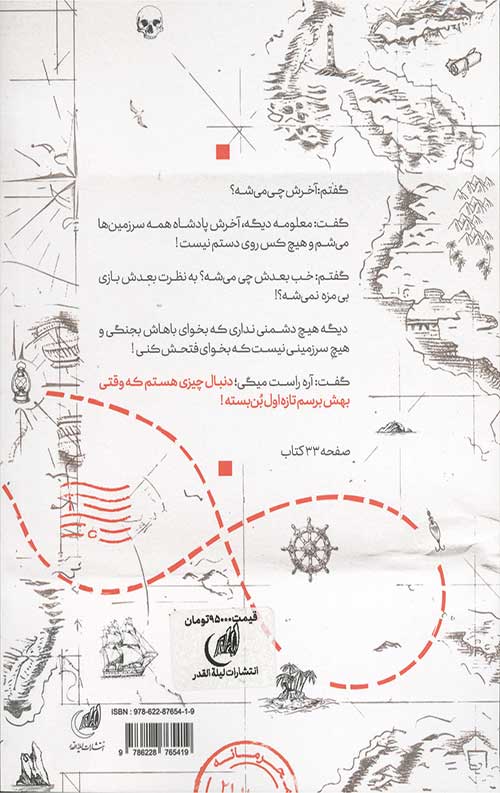 گفتم: آخرش چی می‌شه؟
گفت: معلومه دیگه، آخرش پادشاه همه سرزمین‌ها
می‌شم و هیچ کس روی دستم نیست!
گفتم: خب بعدش چی می‌شه؟ به نظرت بعدش بازی
بی مزه نمی‌شه؟!
دیگه هیچ دشمنی نداری که بخوای باهاش بجنگی و
هیچ سرزمینی نیست که بخوای فتحش کنی!
گفت: آره راست میگی؛ دنبال چیزی هستم که وقتی
بهش برسم تازه اول بُن‌بسته!
صفحه ۳۳ کتاب
قیمت ۹۵۰۰۰ تومان
انتشارات لیلة القدر
ISBN: 978-622-87654-1-9
9 786228 765419
انتشارات لیلة القدر
محرمانه